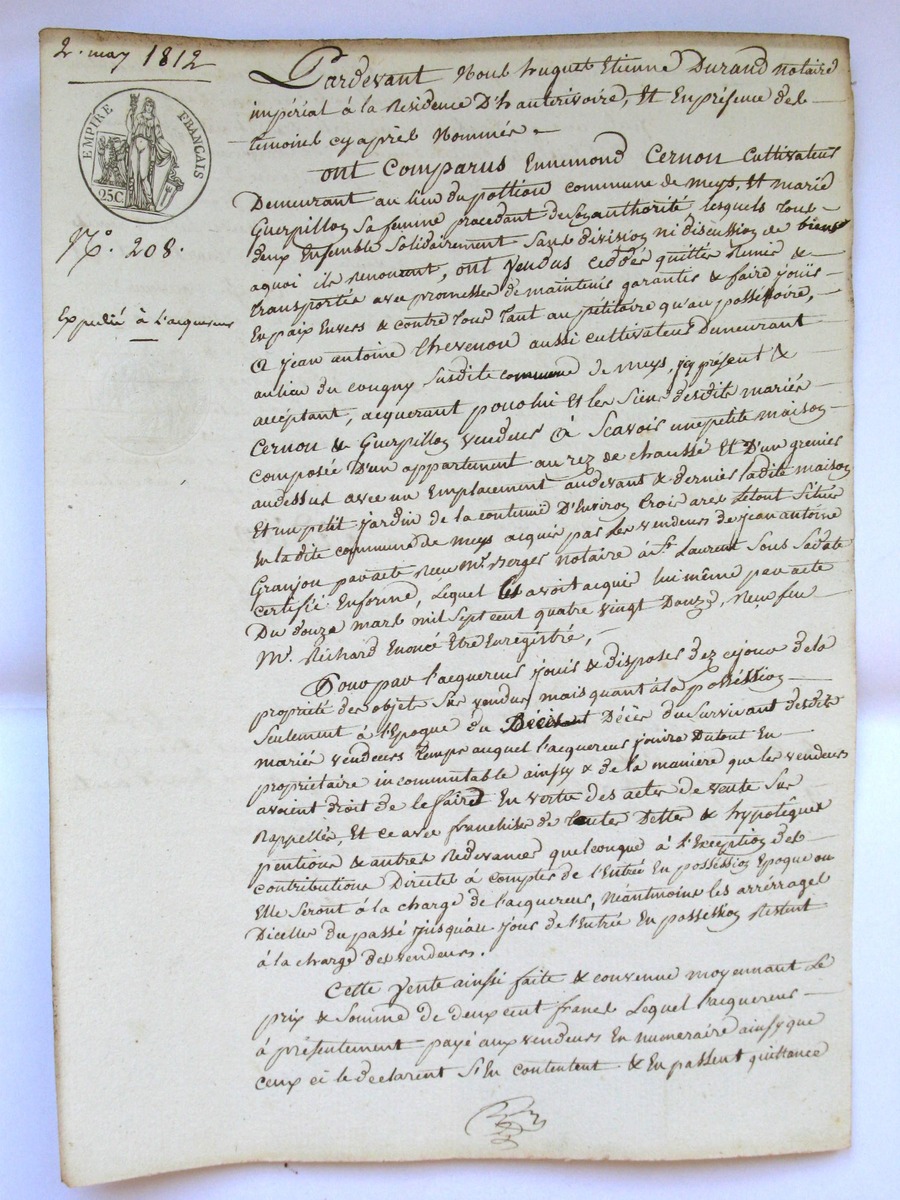 2. may 1812
EMPIRE FRANÇAIS
25C.
N.o 208.
Expedié à L'acquereur
Pardevant Nous huguel Etienne Durand notaire
impérial à la Residence D'hauterivoire, Et En présence des
temoins cy après Nommés.
ont Comparus Ennemond Cernon Cultivateur
Demeurant au lieu du commune de meys, Et marie
Guerpillon Sa femme procedant de Son authorité lesquels tous
deux Ensemble Solidairement Sans division ni discussion de biens
aquoi ils renoncent, ont Vendus ceddés quittés Remis &
transportés avec promesse de maintenir garantir & faire jouir
En paix Envers & contre tous tant au pétitoire qu'au posséssoire,
a jean antoine thevenon aussi cultivateur Demeurant
au lieu du cougny Susdite commune de meys, jcy présent &
accéptant, acquerant pour lui Et les Siens desdits mariés
Cernon & Guerpillon Vendeurs a Scavoir une petite maison
composée D'un appartement au rez de chaussé Et D'un grenier
audessus avec un Emplacement audevant & dernier ladite maison
Et un petit jardin de la contenue D'Environ trois ares letout Situés
En la dite commune de meys acquis par les vendeurs de jean antoine
Granjou par acte Recu M.e Berger notaire à St. Laurent Sous Sa date
certifié Enforme, Lequel les avoit acquis lui même par acte
Du douze mars mil Sept cent quatre vingt Douze, Recu feu
M.e Richard Enoncé Etre Enregistré,
Pour par l'acquereur jouir & disposer dez cejour de la
propriété des objets Sur vendus mais quant à la posséssion
Seulement à l'Epoque du Décès du Survivant desdits
mariés vendeurs temps auquel l'acquereur jouira Du tout En
propriétaire incommutable ainssy & de la maniere que les vendeurs
avoient droit de le faire En vertu des actes de vente Sus
Rappellés, Et ce avec franchise de toutes Dettes & hypotèques
pentions & autres Redevances quelconque à l'Exception des
contributions Directes à compter de l'Entrée En posséssion Epoque ou
Elle Seront à la charge de l'acquereur, Néantmoins les arrérrages
Dicelles du passé jusqu'au jour de l'Entrée En possession Restent
à la charge des vendeurs.
Cette Vente ainsi faite & convenue moyennant Le
prix & Somme de deux cent francs Lequel l'acquereur
à présentement payé aux vendeurs En numeraire ainsy que
ceux ci le declarent S'En contentent & En passent quittance